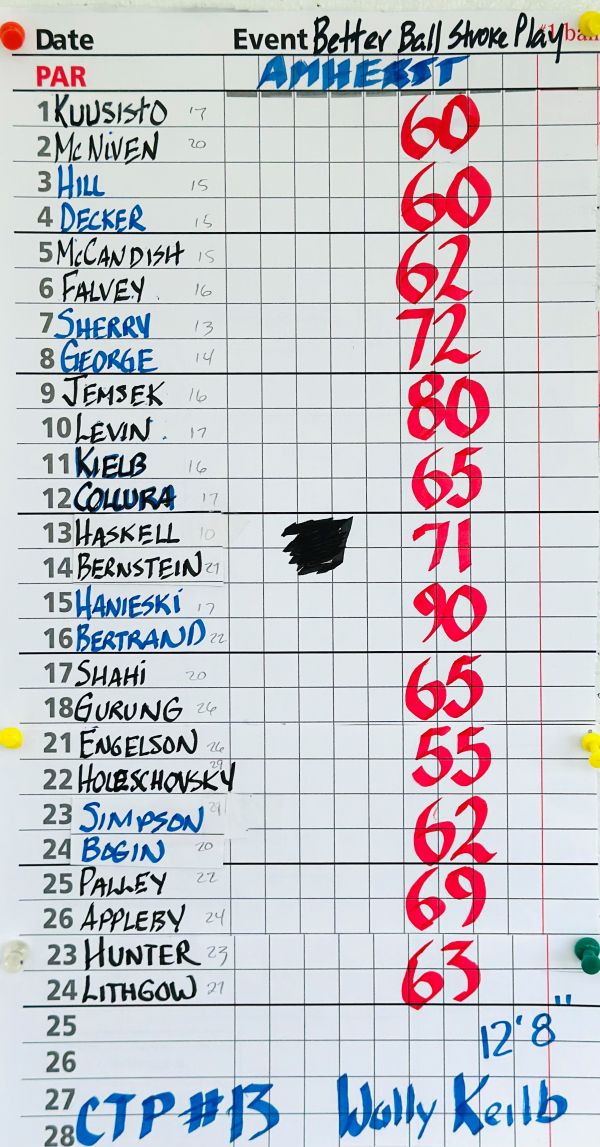 Date Event Better Ball Stroke Play #1 ball
PAR AMHERST
1 KUUSISTO 17 60
2 McNIVEN 20
3 HILL 15 60
4 DECKER 15
5 McCANDISH 15 62
6 FALVEY 16
7 SHERRY 13 72
8 GEORGE 14
9 JEMSEK 16 80
10 LEVIN 17
11 KIELB 16 65
12 COLLURA 17
13 HASKELL 10 71
14 BERNSTEIN 21
15 HANIESKI 17 90
16 BERTRAND 22
17 SHAHI 20 65
18 GURUNG 26
21 ENGELSON 26 55
22 HOLESCHOVSKY 29
23 SIMPSON 21 62
24 BOGIN 20
25 PALLEY 22 69
26 APPLEBY 24
23 HUNTER 23 63
24 LITHGOW 21
25 12'8"
26
27 CTP #13 Wally Keilb
28